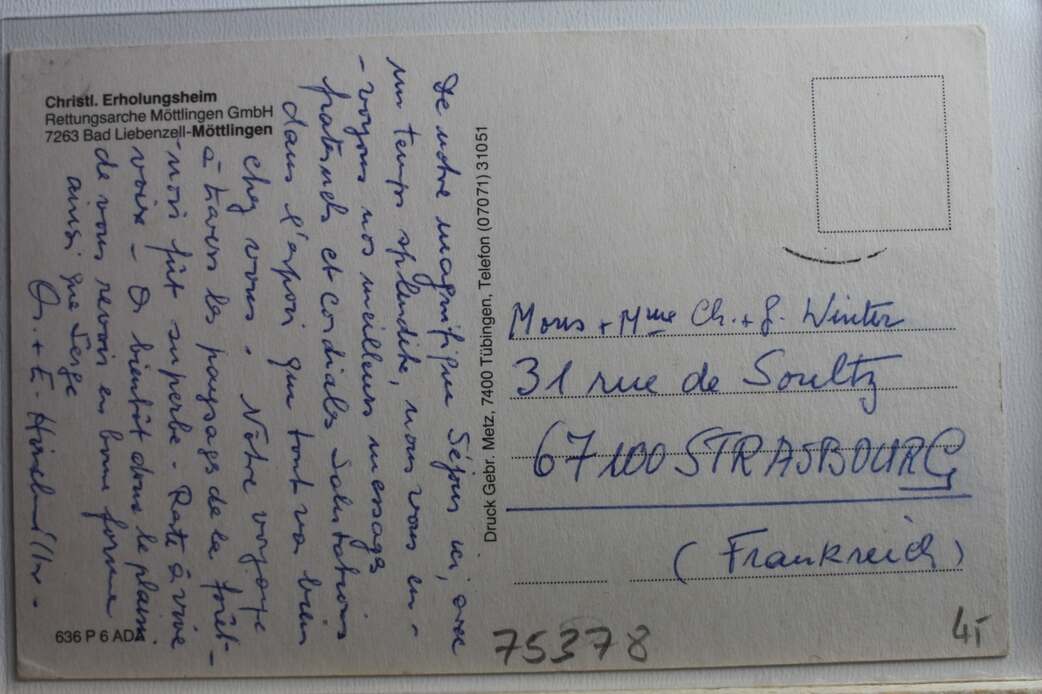 Christl. Erholungsheim
Rettungsarche Möttlingen GmbH
7263 Bad Liebenzell-Möttlingen
De notre magnifique Séjour ici, avec
un temps splendide, nous vous en-
-voyons nos meilleurs messages
fraternels et cordiales Salutations
dans l'espoir que tout va bien
chez vous. Nôtre voyage
à travers les paysages de la forêt-
-noire fût superbe.
voix - A bientôt donc le plaisir
de vous revoir en bonne forme
ainsi que Serge
+ E.
636 P 6 ADA
Druck Gebr. Metz, 7400 Tübingen, Telefon (07071) 31051
Mons + Mme Ch. + G. Winter
31 rue de Soultz
67100 STRASBOURG
(Frankreich)
75378
4,-